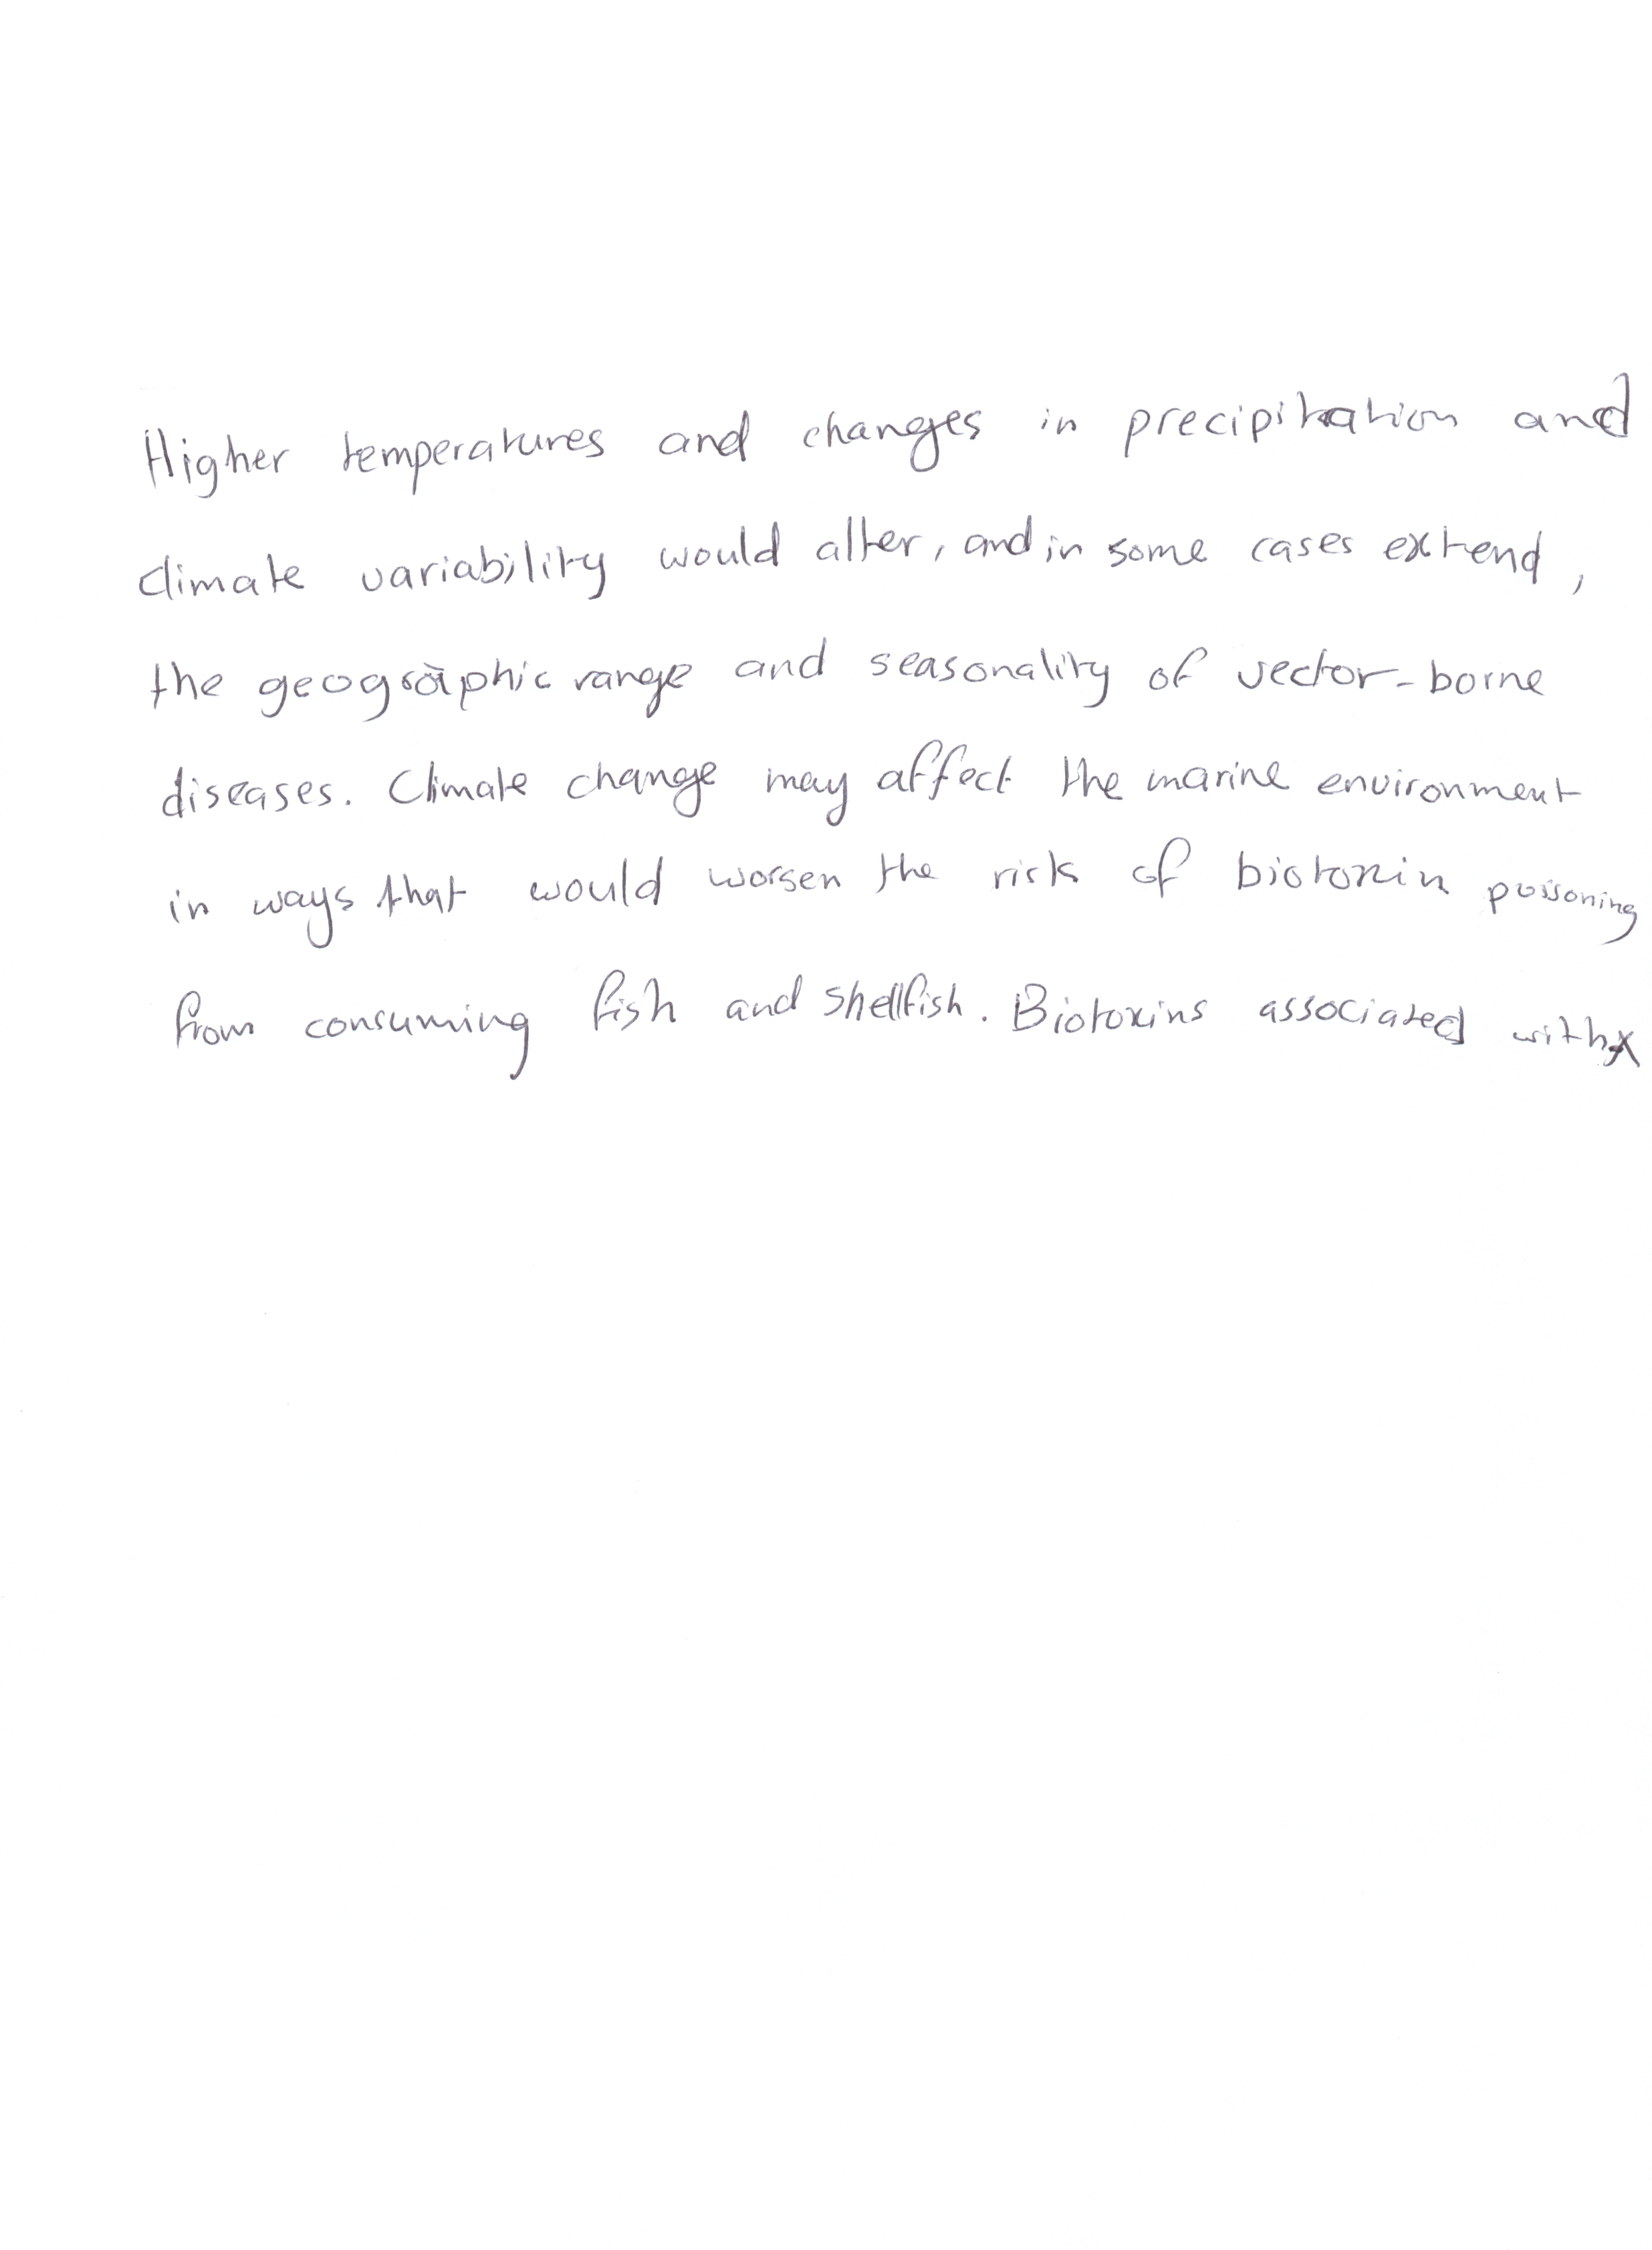 Higher temperatures and changes in precipitation and
climate variability would alter, and in some cases extend,
the geographic range and seasonality of vector-borne
diseases. Climate change may affect the marine environment
in ways that would worsen the risk of biotoxin poisoning
from consuming fish and shellfish. Biotoxins associated with